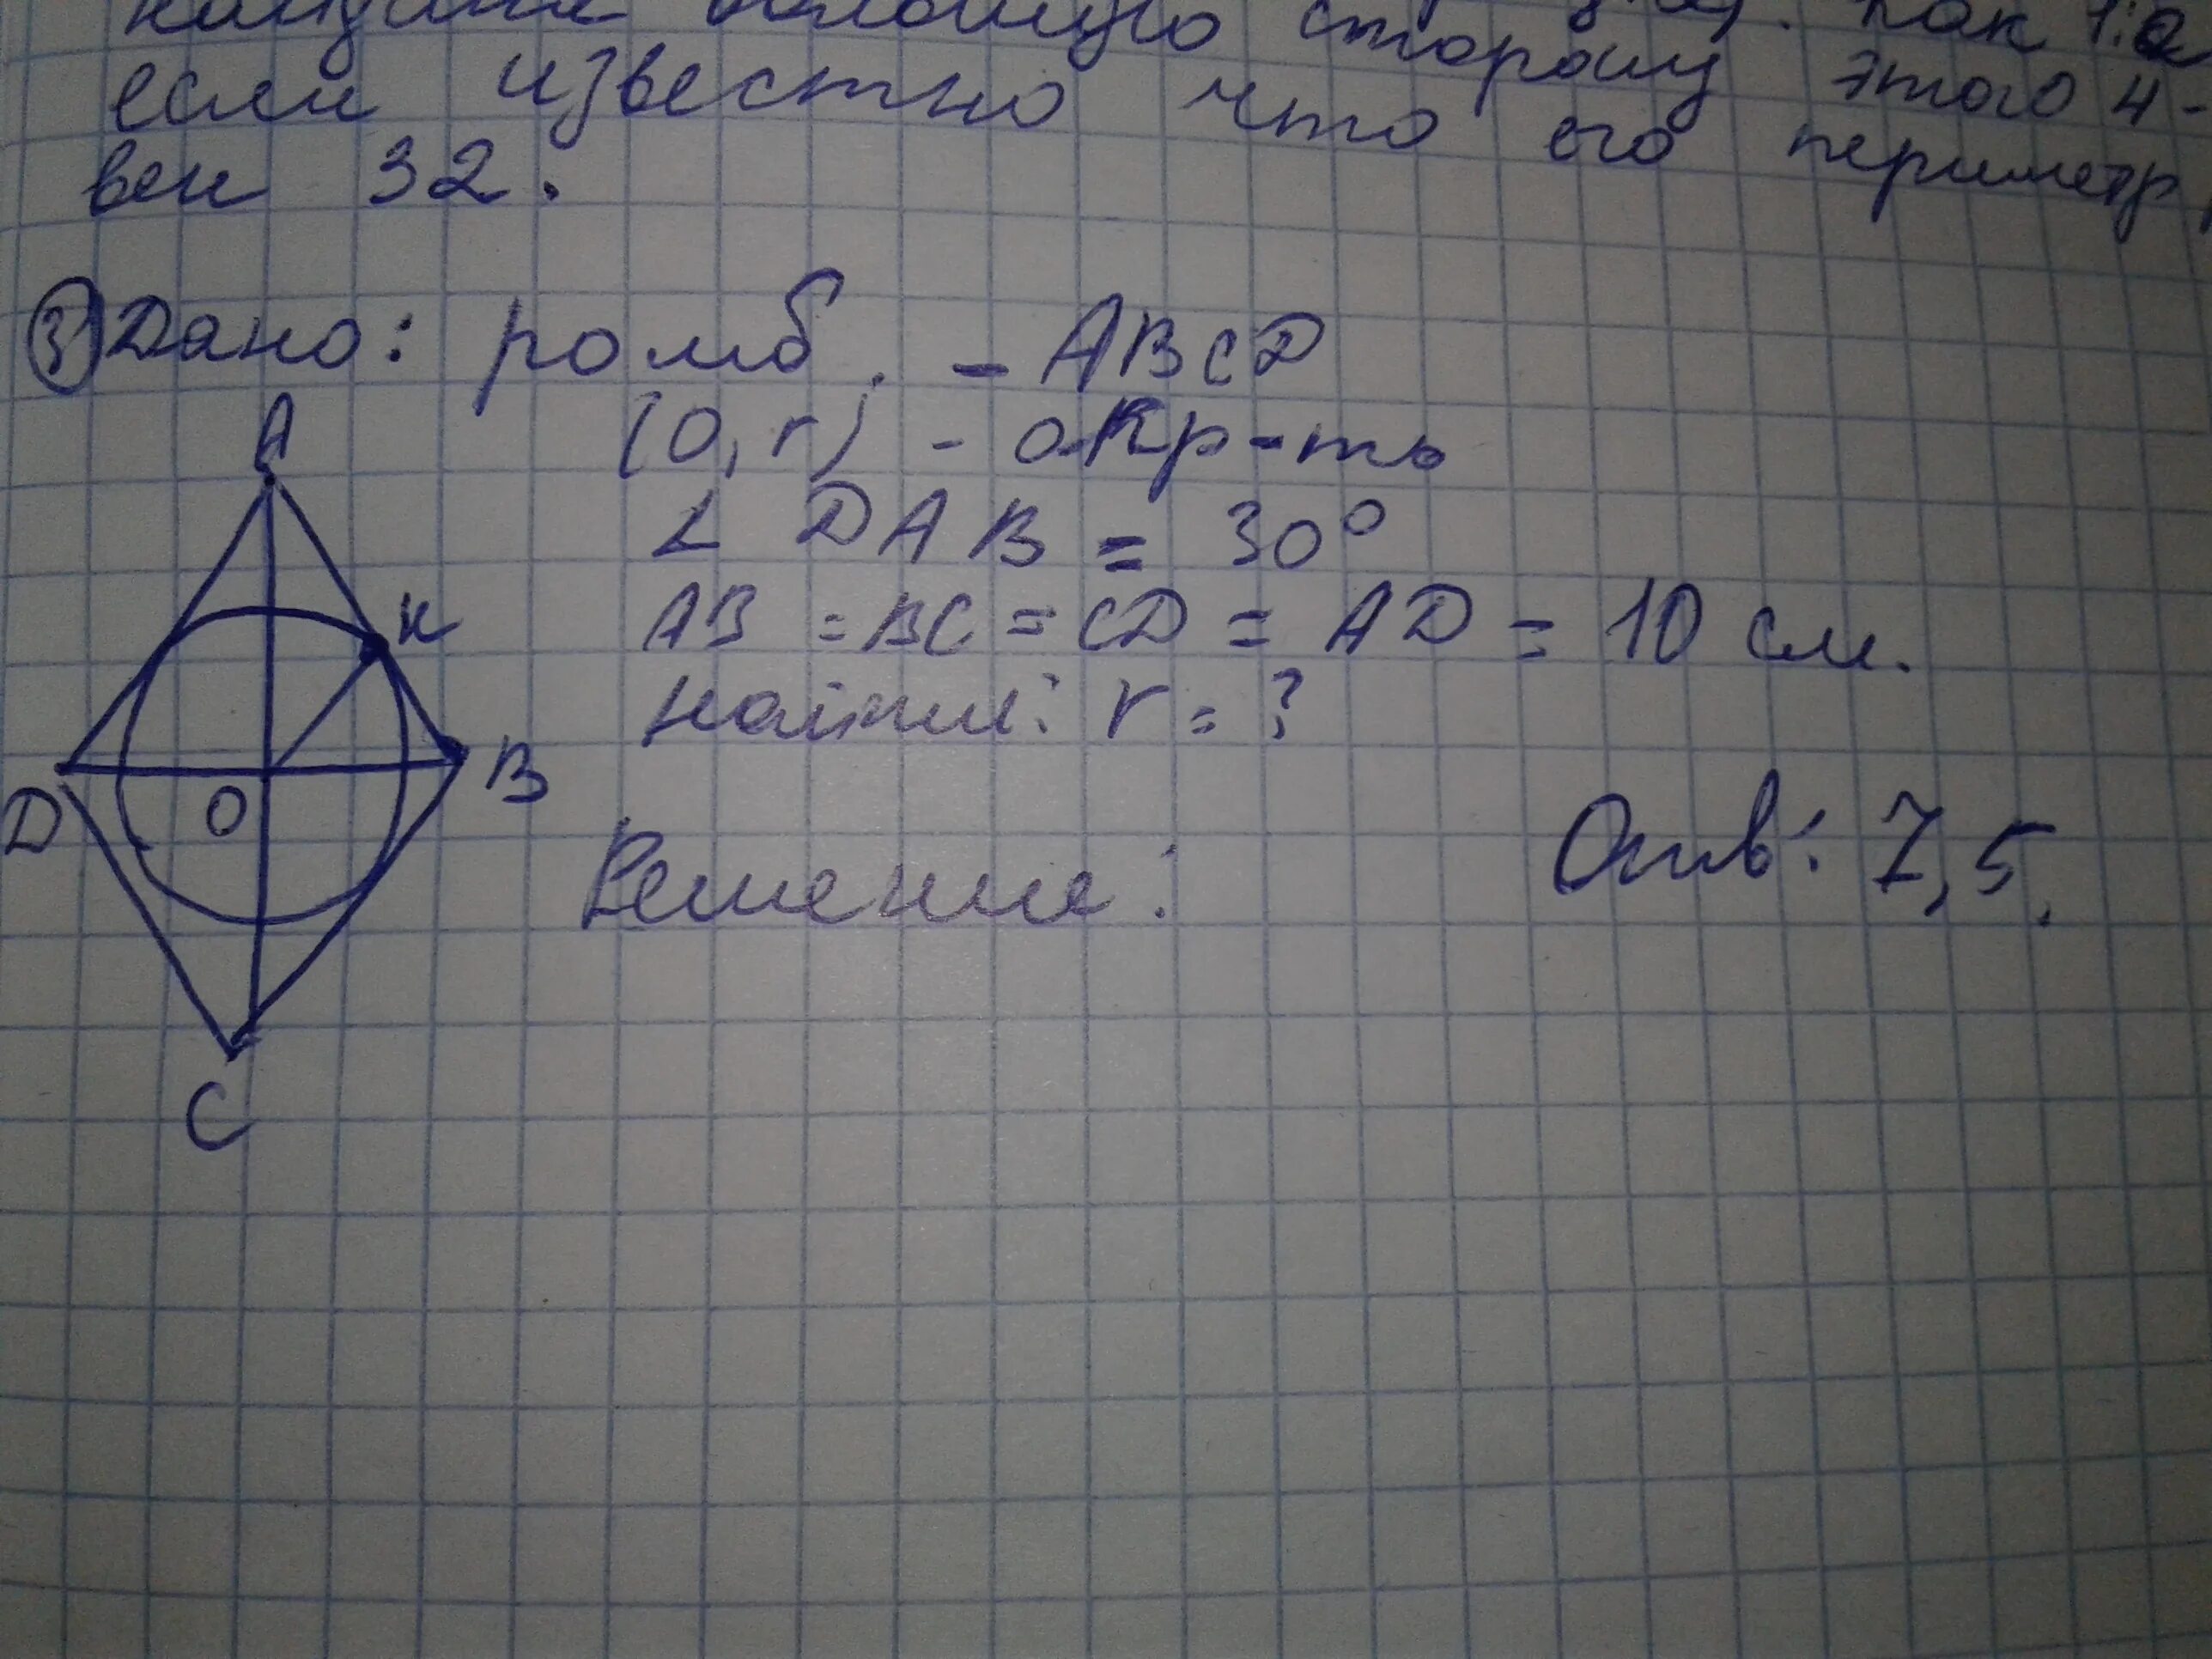 сторону этого 4-
как 1:2
если известно что его периметр
вен 32.
3 Дано: ромб. - ABCD
(O, r) - окр-ть
∠ DAB = 30°
AB = BC = CD = AD = 10 см.
Найти: r = ?
Решение:
Отв: 7,5.
A
K
D
O
B
C